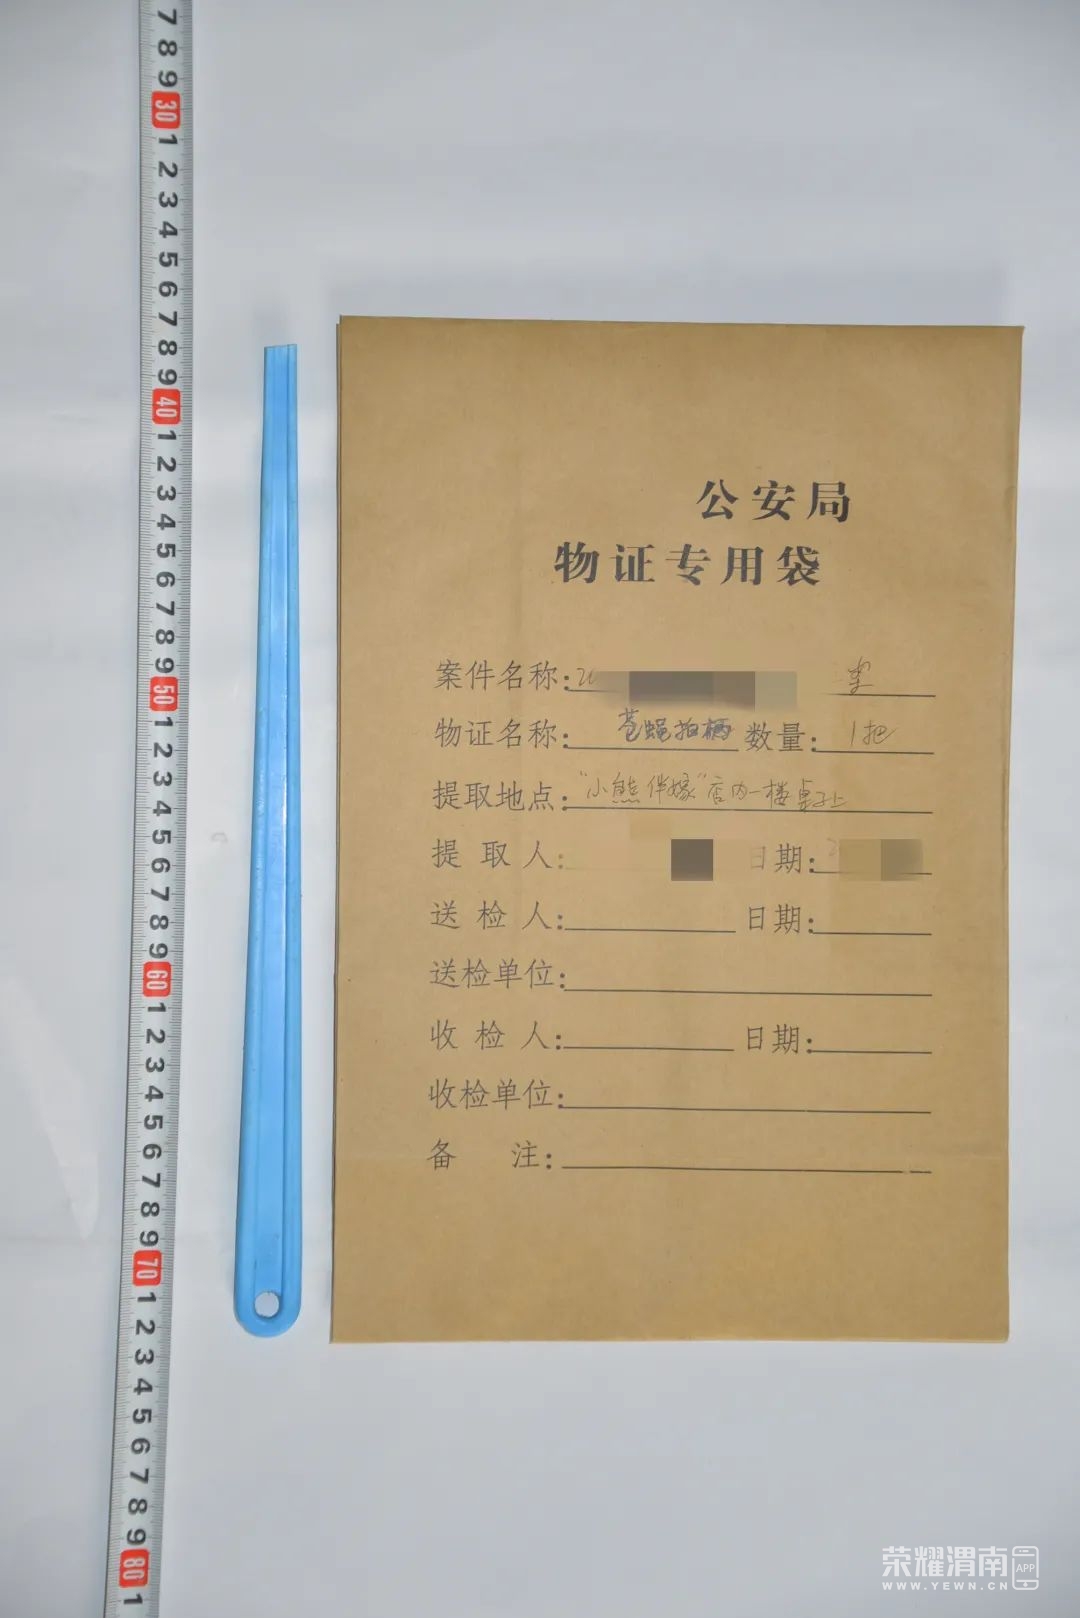 7
8
9
30
1
2
3
4
5
6
7
8
9
40
1
2
3
4
5
6
7
8
9
50
1
2
3
4
5
6
7
8
9
60
1
2
3
4
5
6
7
8
9
70
1
2
3
4
5
6
7
8
9
80
1
公安局
物证专用袋
案件名称: 20
物证名称: 苍蝇拍柄 数量: 1把
提取地点: "小熊伴嫁"店内一楼桌子上
提取人: 日期: 2
送检人: 日期:
送检单位:
收检人: 日期:
收检单位:
备注:
荣耀渭南 APP
WWW.YEWN.CN